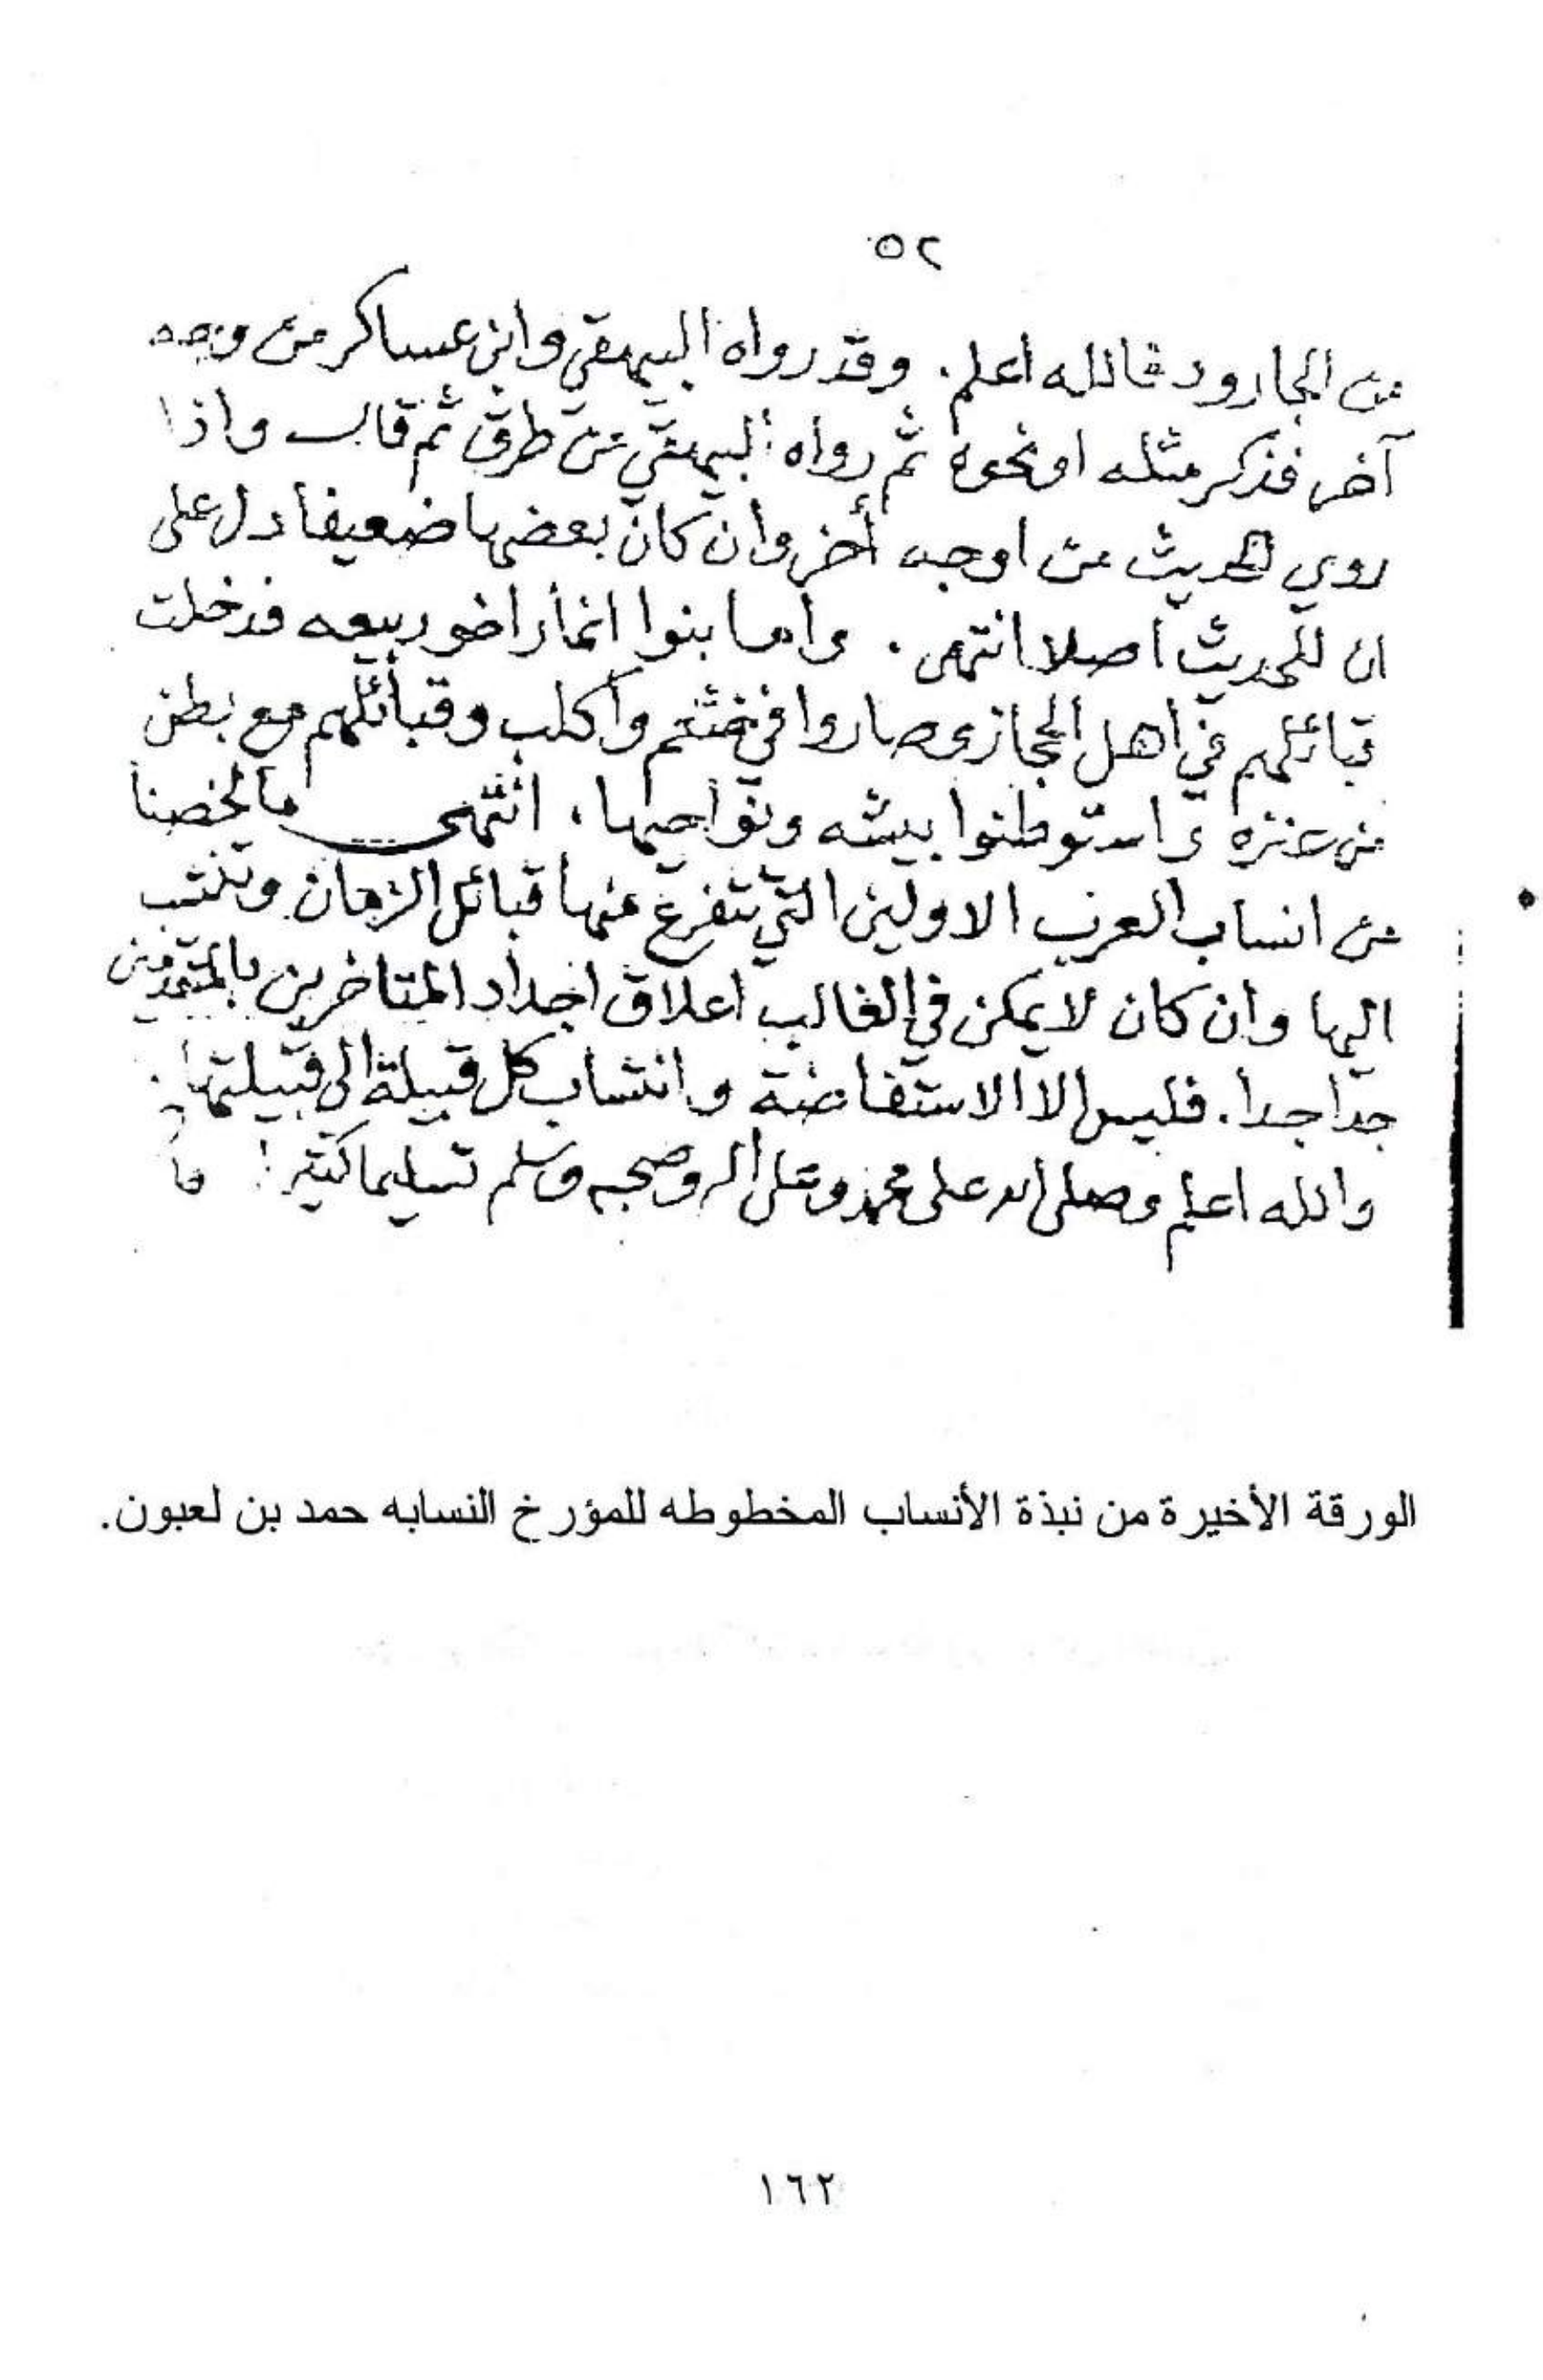 ٥٢
من الجارود فالله اعلم. وقد رواه البيهقي وابن عساكر من وجه
آخر فذكر مثله او نحوه ثم رواه البيهقي من طرق ثم قال واذا
روي الحديث من اوجه أخر وان كان بعضها ضعيفا دل على
ان للحديث اصلا انتهى. واما بنوا انمار اخو ربيعه فدخلت
قبائلهم في اهل الحجاز وصاروا في خثعم واكلب وقبائلهم مع بطن
من عنزه واستوطنوا بيشه ونواحيها. انتهى ما لخصنا
من انساب العرب الاولين التي تتفرع منها قبائل الزمان وتنتسب
اليها وان كان لا يمكن في الغالب اعلاق اجداد المتاخرين بالمتقدمين
جدا جدا. فليس الا الاستفاضة وانتساب كل قبيلة الى قبيلتها
والله اعلم وصلى الله على محمد وعلى اله وصحبه وسلم تسليما كثيرا
الورقة الأخيرة من نبذة الأنساب المخطوطه للمؤرخ النسابه حمد بن لعبون.
١٦٢